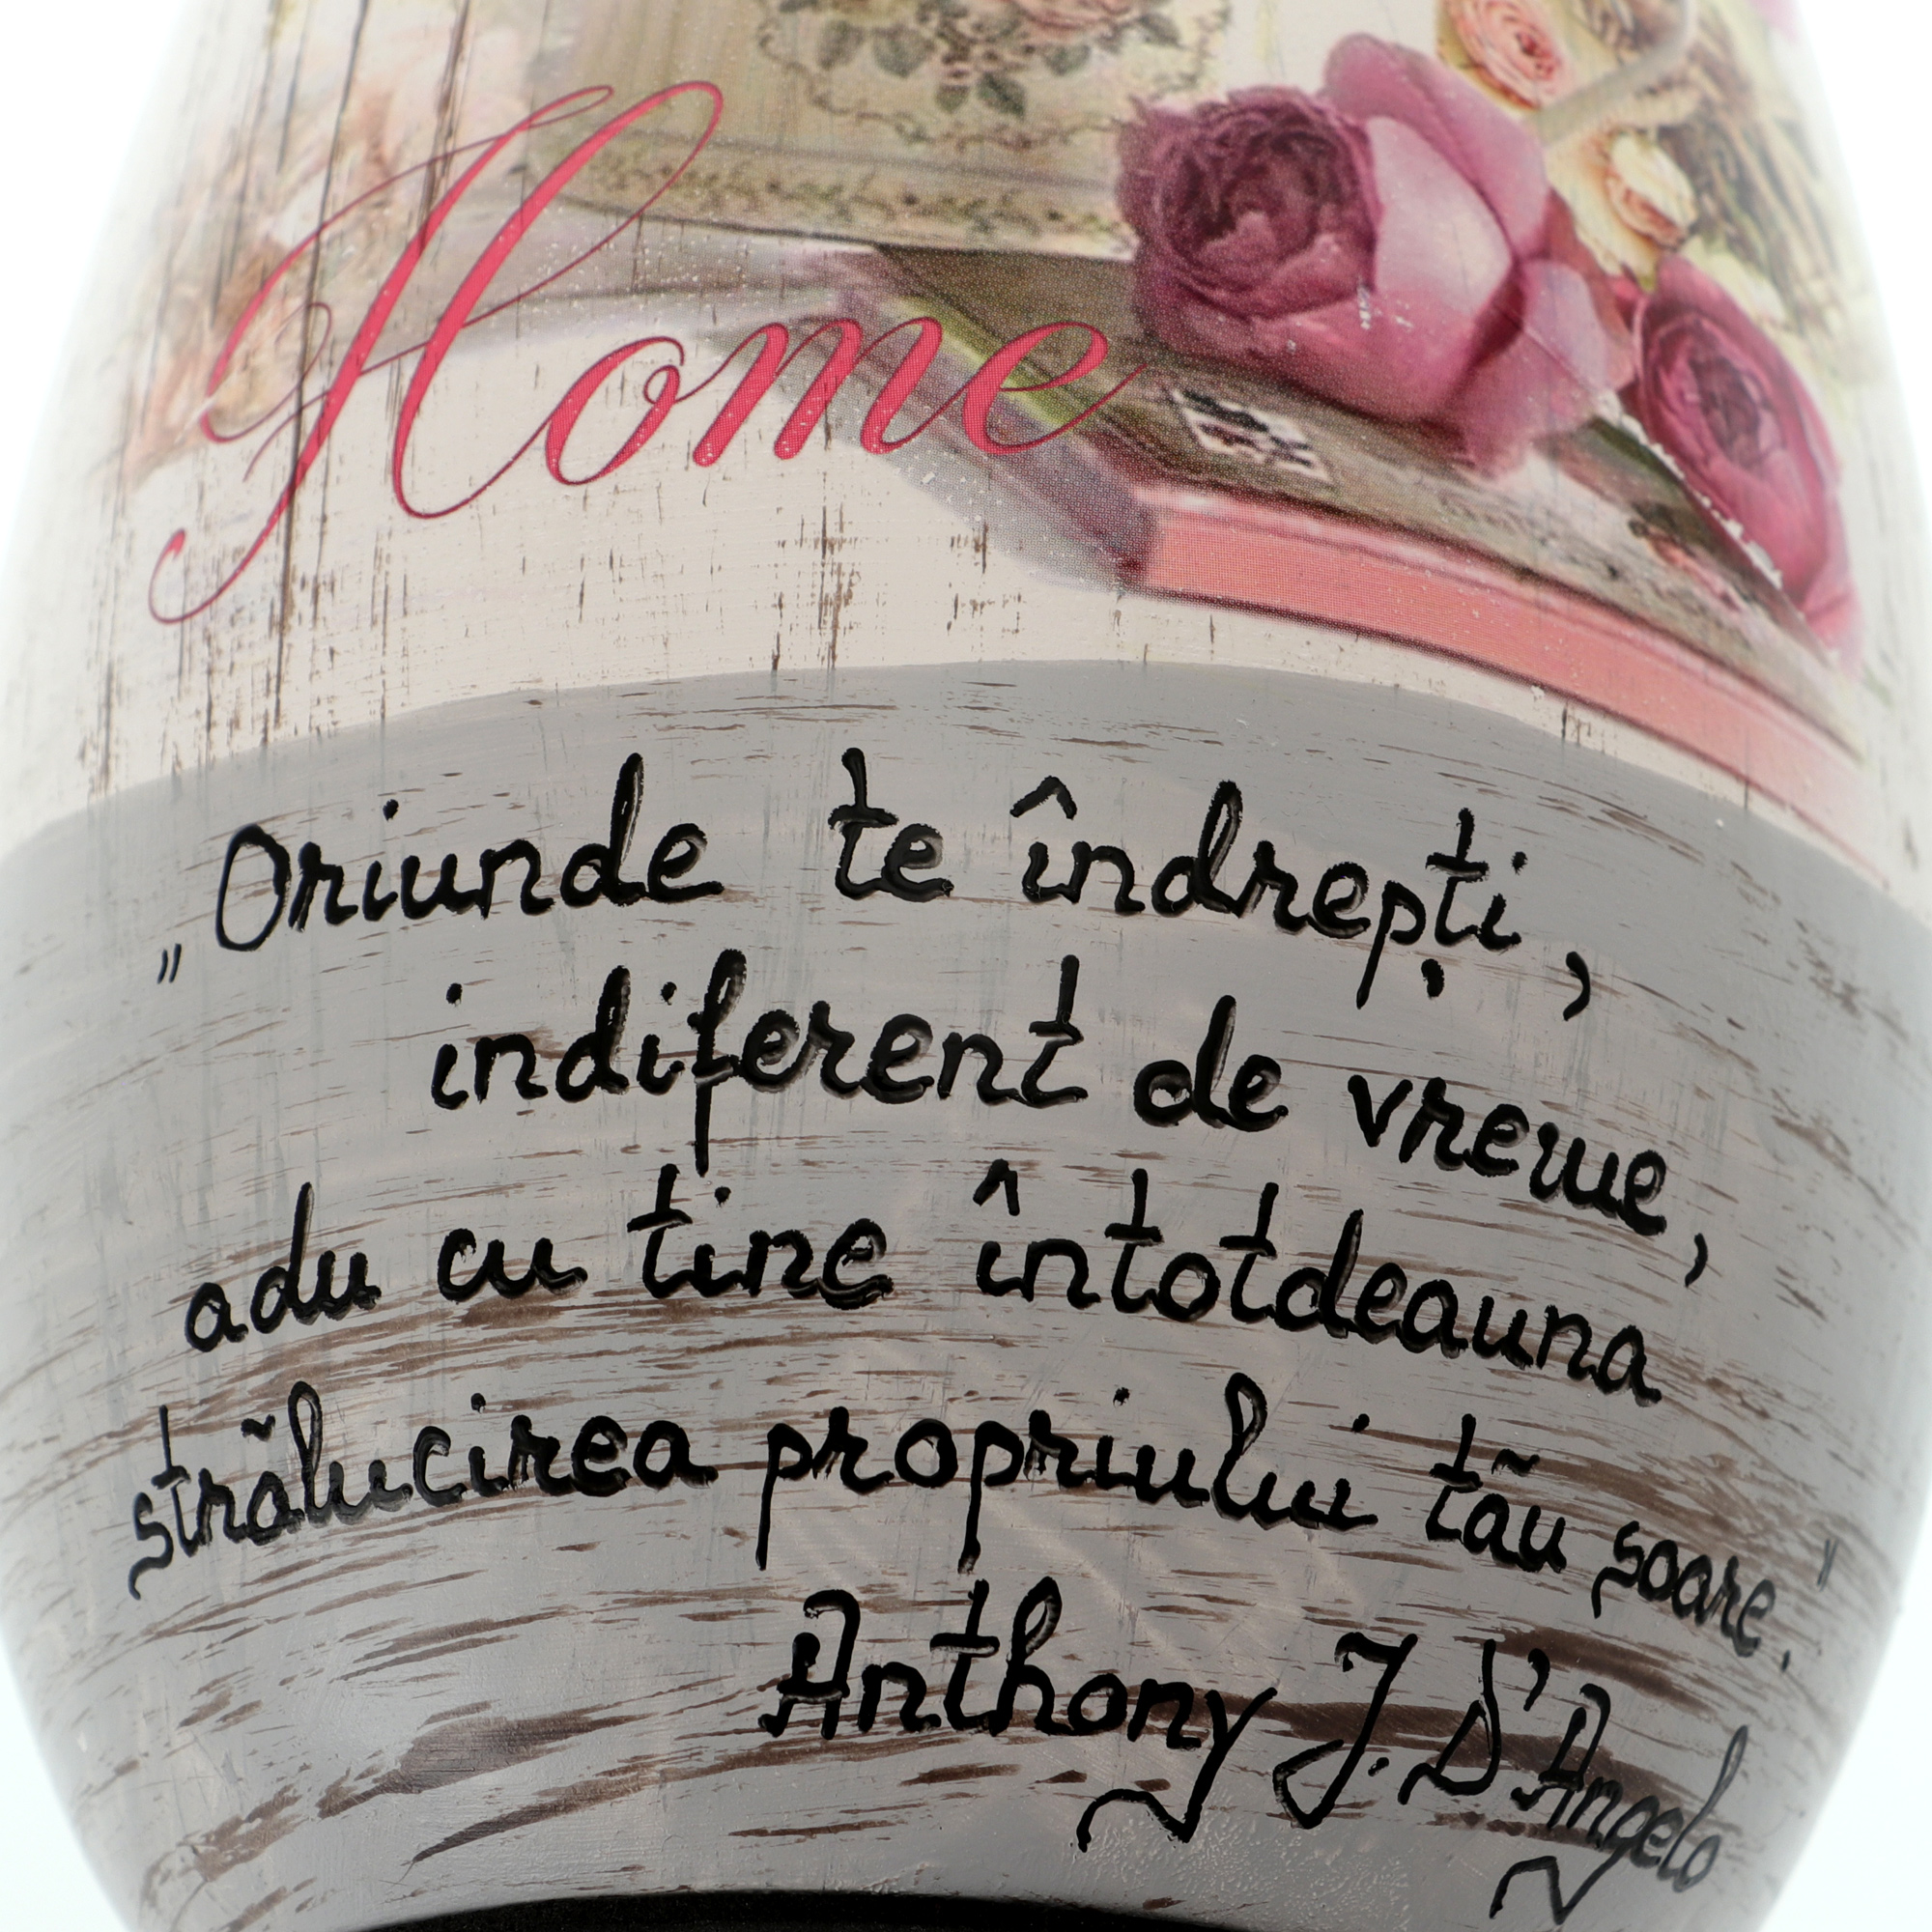 Home
„Oriunde te îndrepți,
indiferent de vreme,
adu cu tine întotdeauna
strălucirea propriului tău soare."
Anthony J. D'Angelo